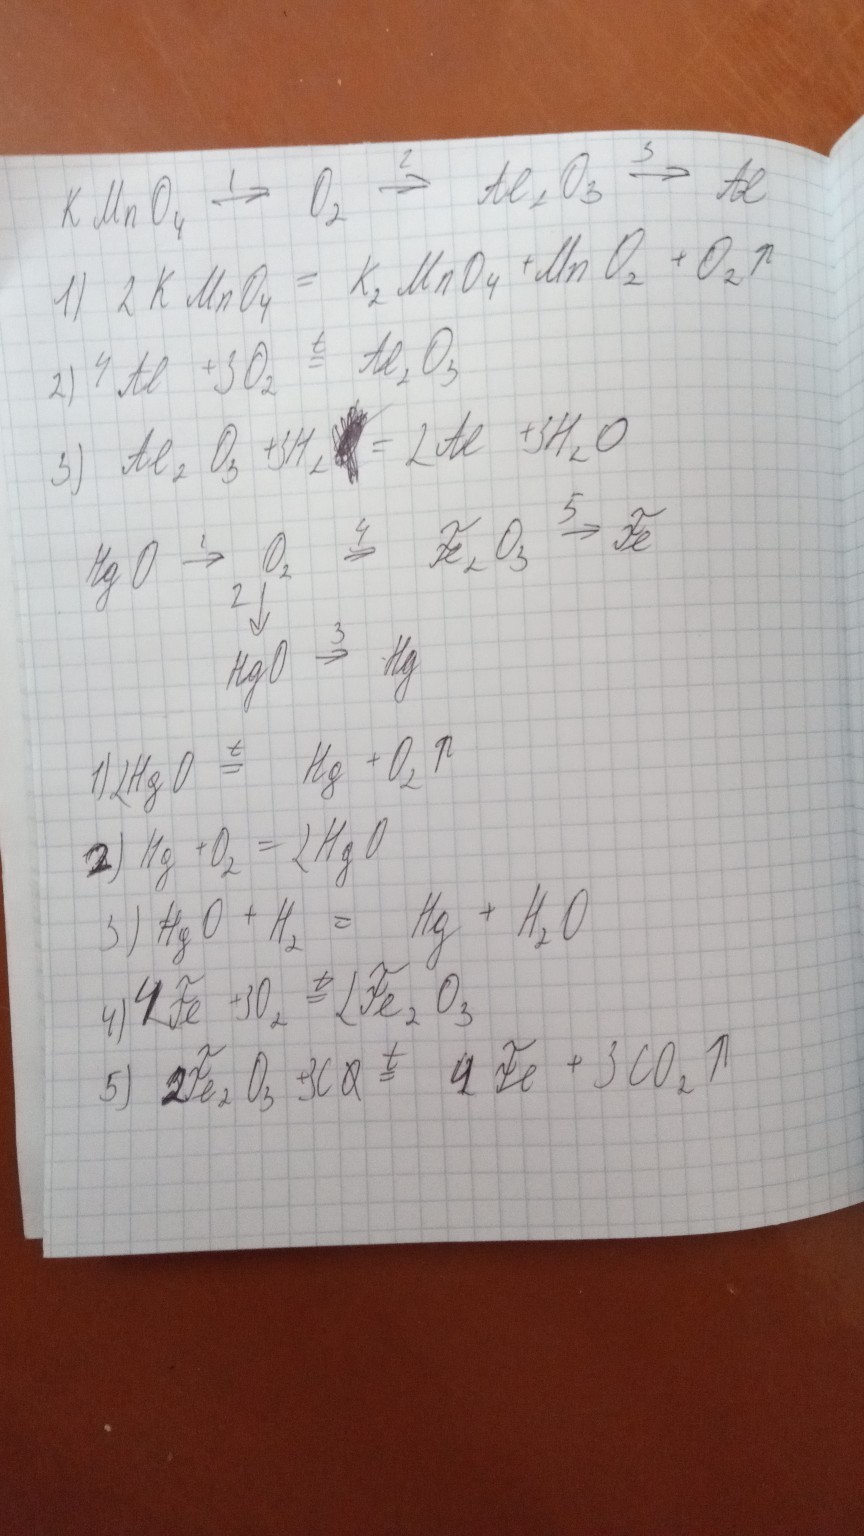 KMnO₄ →¹ O₂ →² Al₂O₃ →³ Al
1) 2KMnO₄ = K₂MnO₄ + MnO₂ + O₂↑
2) 4Al + 3O₂ =ᵗ Al₂O₃
3) Al₂O₃ + 3H₂ = 2Al + 3H₂O
HgO →¹ O₂ →⁴ Fe₂O₃ →⁵ Fe
2 ↓
HgO →³ Hg
1) 2HgO =ᵗ Hg + O₂↑
2) Hg + O₂ = 2HgO
3) HgO + H₂ = Hg + H₂O
4) 4Fe + 3O₂ =ᵗ 2Fe₂O₃
5) 2Fe₂O₃ + 3CO =ᵗ 4Fe + 3CO₂↑